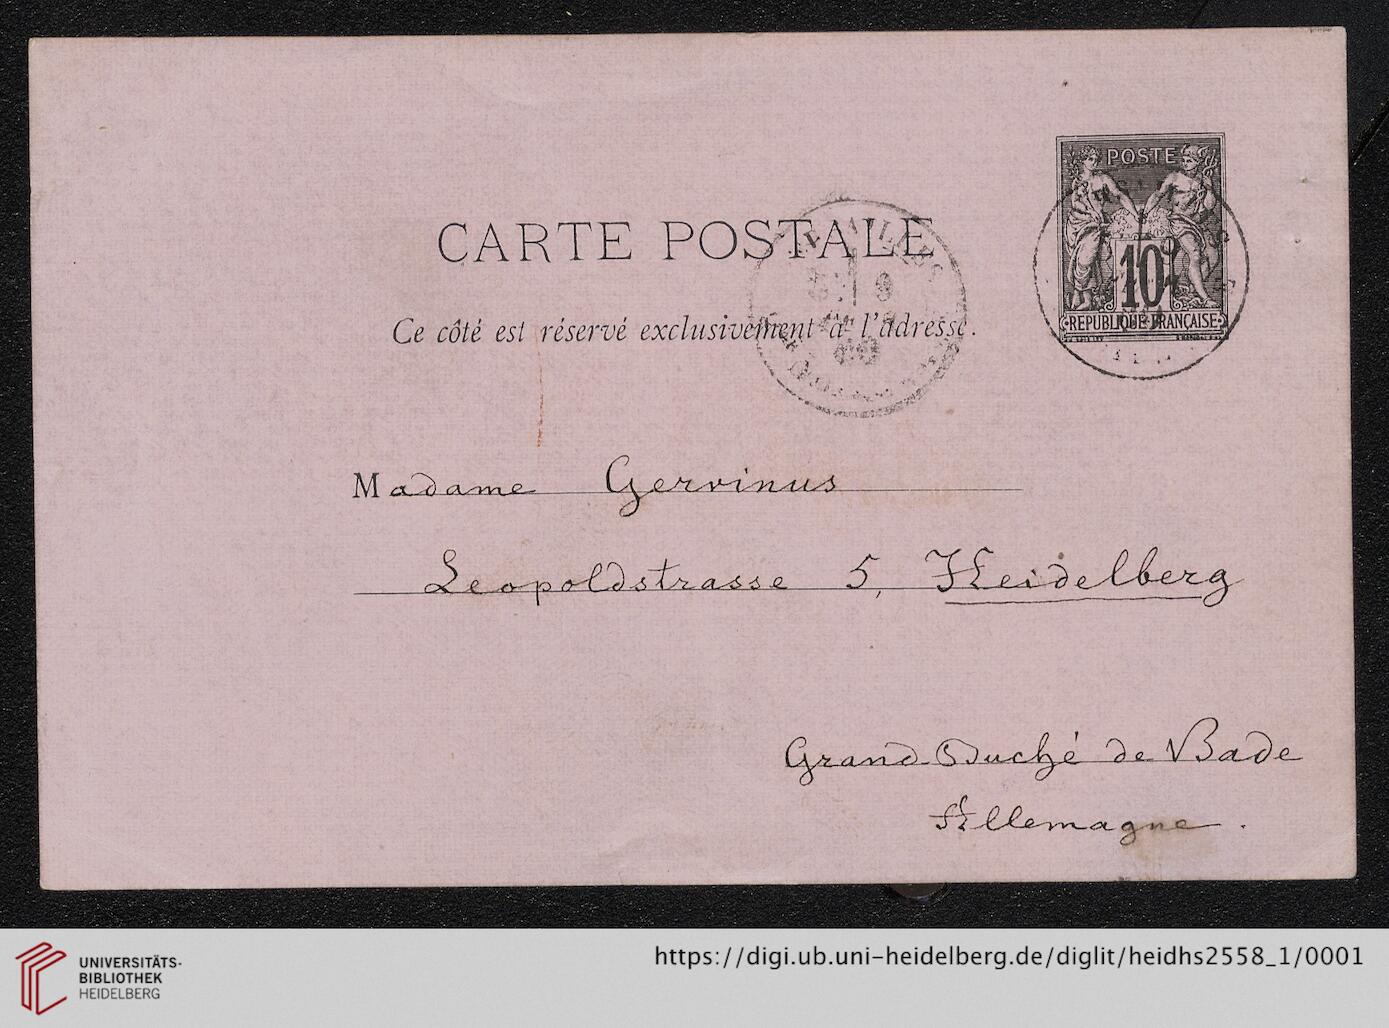 POSTE
CARTE POSTALE
10
Ce côté est réservé exclusivement à l'adresse.
REPUBLIQUE FRANÇAISE
Madame Gervinus
Leopoldstrasse 5, Heidelberg
Grand-Duché de Bade
Allemagne.
UNIVERSITÄTS-
BIBLIOTHEK
HEIDELBERG
https://digi.ub.uni-heidelberg.de/diglit/heidhs2558_1/0001